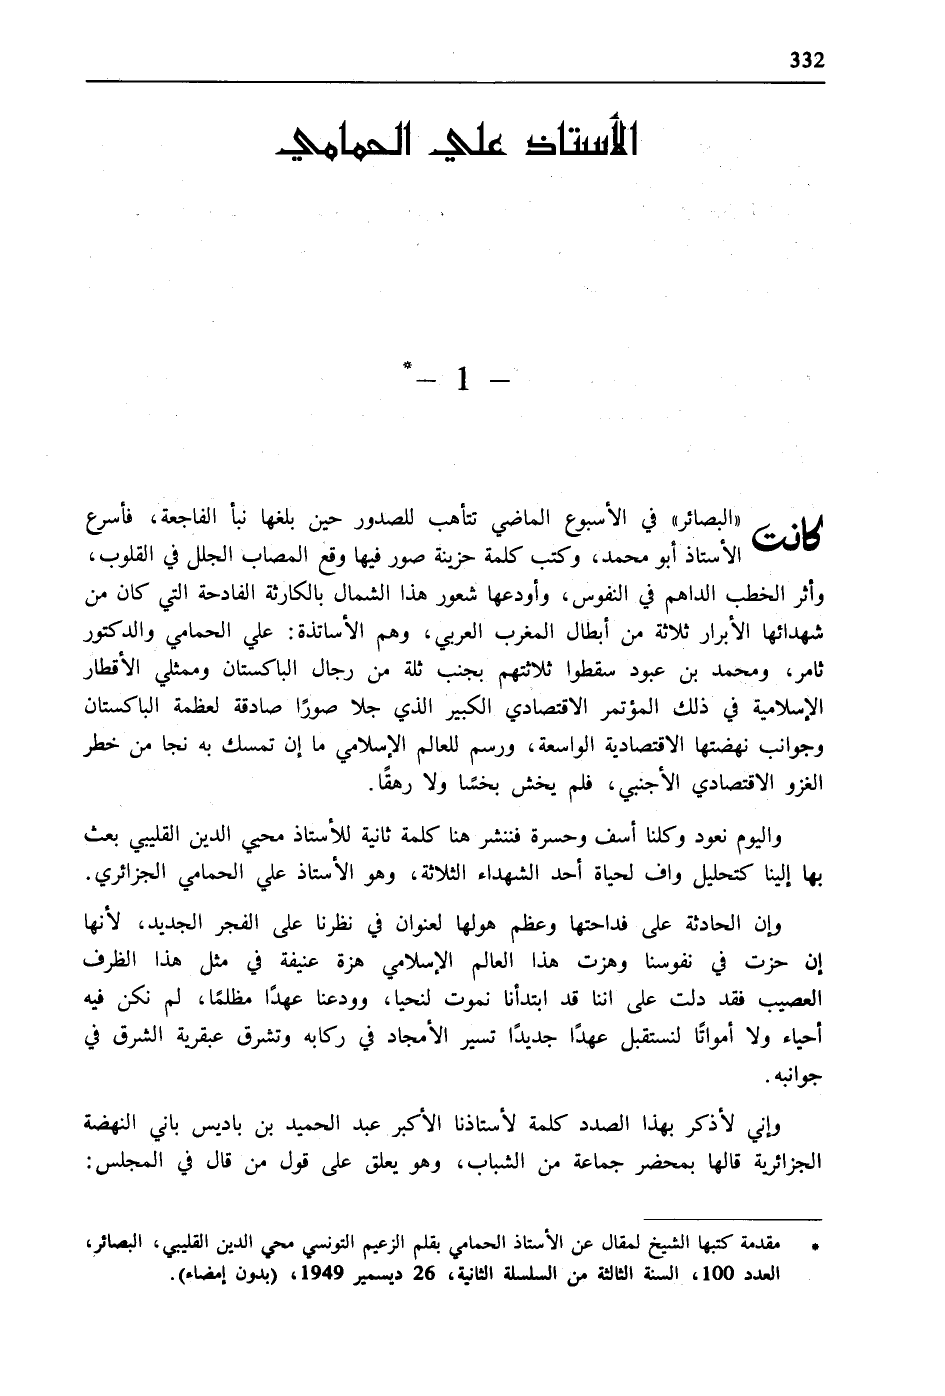 332
الأستاذ علي الحمامي
– 1 –*
كانت «البصائر» في الأسبوع الماضي تتأهب للصدور حين بلغها نبأ الفاجعة، فأسرع
الأستاذ أبو محمد، وكتب كلمة حزينة صور فيها وقع المصاب الجلل في القلوب،
وأثر الخطب الداهم في النفوس، وأودعها شعور هذا الشمال بالكارثة الفادحة التي كان من
شهدائها الأبرار ثلاثة من أبطال المغرب العربي، وهم الأساتذة: علي الحمامي والدكتور
ثامر، ومحمد بن عبود سقطوا ثلاثتهم بجنب ثلة من رجال الباكستان وممثلي الأقطار
الإسلامية في ذلك المؤتمر الاقتصادي الكبير الذي جلا صورًا صادقة لعظمة الباكستان
وجوانب نهضتها الاقتصادية الواسعة، ورسم للعالم الإسلامي ما إن تمسك به نجا من خطر
الغزو الاقتصادي الأجنبي، فلم يخش بخسًا ولا رهقًا.
واليوم نعود وكلنا أسف وحسرة فننشر هنا كلمة ثانية للأستاذ محيي الدين القليبي بعث
بها إلينا كتحليل واف لحياة أحد الشهداء الثلاثة، وهو الأستاذ علي الحمامي الجزائري.
وإن الحادثة على فداحتها وعظم هولها لعنوان في نظرنا على الفجر الجديد، لأنها
إن حزت في نفوسنا وهزت هذا العالم الإسلامي هزة عنيفة في مثل هذا الظرف
العصيب فقد دلت على اننا قد ابتدأنا نموت لنحيا، وودعنا عهدًا مظلمًا، لم نكن فيه
أحياء ولا أمواتًا لنستقبل عهدًا جديدًا تسير الأمجاد في ركابه وتشرق عبقرية الشرق في
جوانبه.
وإني لأذكر بهذا الصدد كلمة لأستاذنا الأكبر عبد الحميد بن باديس باني النهضة
الجزائرية قالها بمحضر جماعة من الشباب، وهو يعلق على قول من قال في المجلس:
* مقدمة كتبها الشيخ لمقال عن الأستاذ الحمامي بقلم الزعيم التونسي محي الدين القليبي، البصائر،
العدد 100، السنة الثالثة من السلسلة الثانية، 26 ديسمبر 1949، (بدون إمضاء).